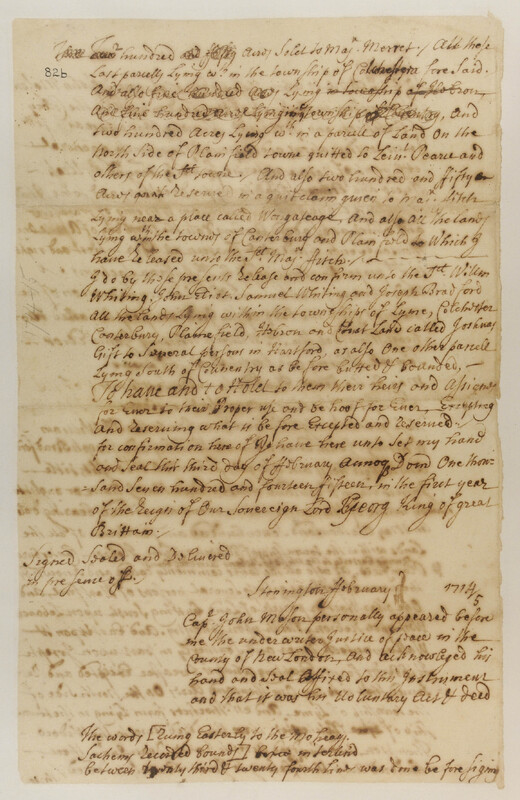 hundred and fifty Acres Sold to Maj. Merret. / All those
82b
Last parcells Lying wth in the township of Colchester fore said.
And also five Hundred Acres Lying
And five hundred Acres Lying in township of Coventry, And
two hundred Acres Lying wth in a parcell of Land On the
North Side of Plainfield towne quitted to Leiut Pearce and
others of the sd towne. / And also two hundred and fifty
Acres Reserved in a quit claim given to Maj. Fitch
Lying near a place called Wongascoag, And also all the lands
Lying wth in the townes of Canterbury and Plainfield to which I
have Released unto the sd Maj. Fitch. /
I do by these presents Release and confirm unto the sd William
Whiting, John Eliot, Samuel Whiting and Joseph Bradford
All the Lands Lying within the townships of Lyme, Colchester
Canterbury, Plainefield, Hebron and that Land called Joshuas
Gift to Severall persons in Hartford, as also One other parcell
Lying South of Coventry as before butted & bounded,
To have and to Hold to them their heirs and Assignes
for Ever to their Proper use and be hoof for Ever, Excepting
And reserving what is before Excepted and reserved.
In confirmation here of I have here unto Set my hand
and Seal this third day of ffebruary Annoq Dom One thou-
sand Seven hundred and fourteen fifteen, in the first year
of the Reign of Our Sovereign Lord Georg King of great
Brittain.
Signed Sealed and Delivered
in presence off.
Stonington ffebruary 1714/5
Capt. John Mason personally appeared before
me the under writer Justice of peace in the
County of New London, And acknowleged his
hand and Seal affixed to this Instrument
and that it was his Voluntary Act & deed
The words [Runing Easterly to the Mohegs
Sachems Recorded bounds] being interlind
between twenty third & twenty fourth line was done before signing